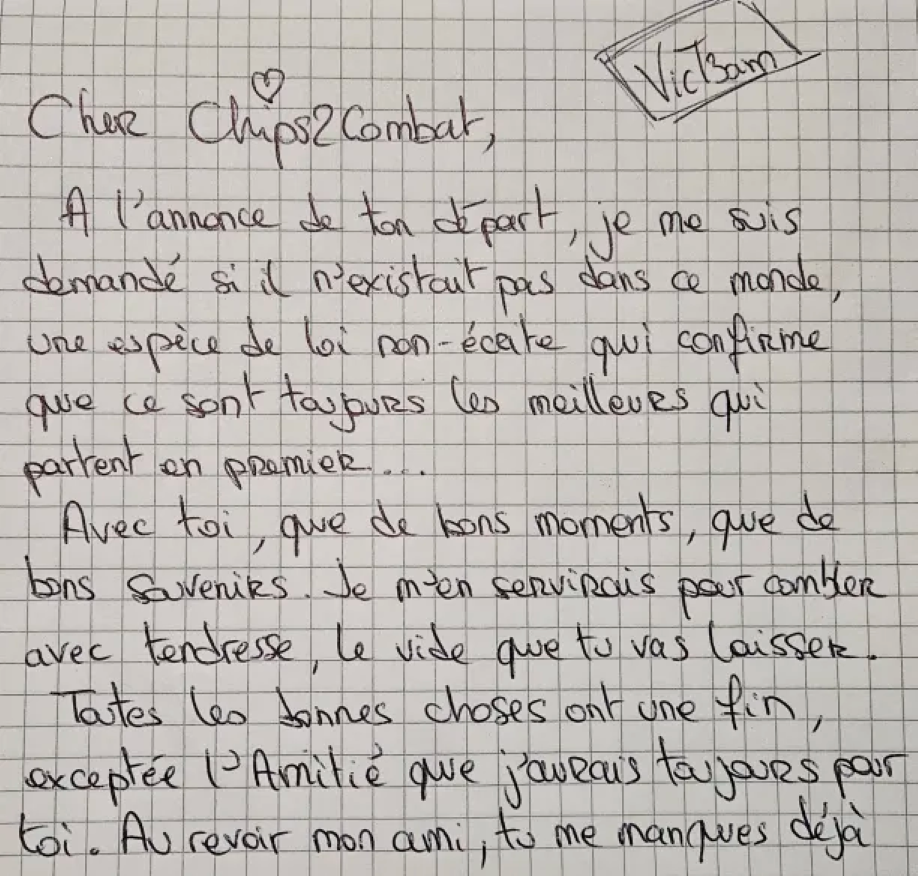 VicTBam
Cher Chips2Combat,
A l'annonce de ton départ, je me suis
demandé si il n'existait pas dans ce monde,
une espèce de loi non-écrite qui confirme
que ce sont toujours les meilleurs qui
partent en premier...
Avec toi, que de bons moments, que de
bons souvenirs. Je m'en servirais pour combler
avec tendresse, le vide que tu vas laisser.
Toutes les bonnes choses ont une fin,
exceptée l'Amitié que j'aurais toujours pour
toi. Au revoir mon ami, tu me manques déjà